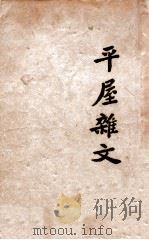 平屋雜文
研狗
mtoou.info